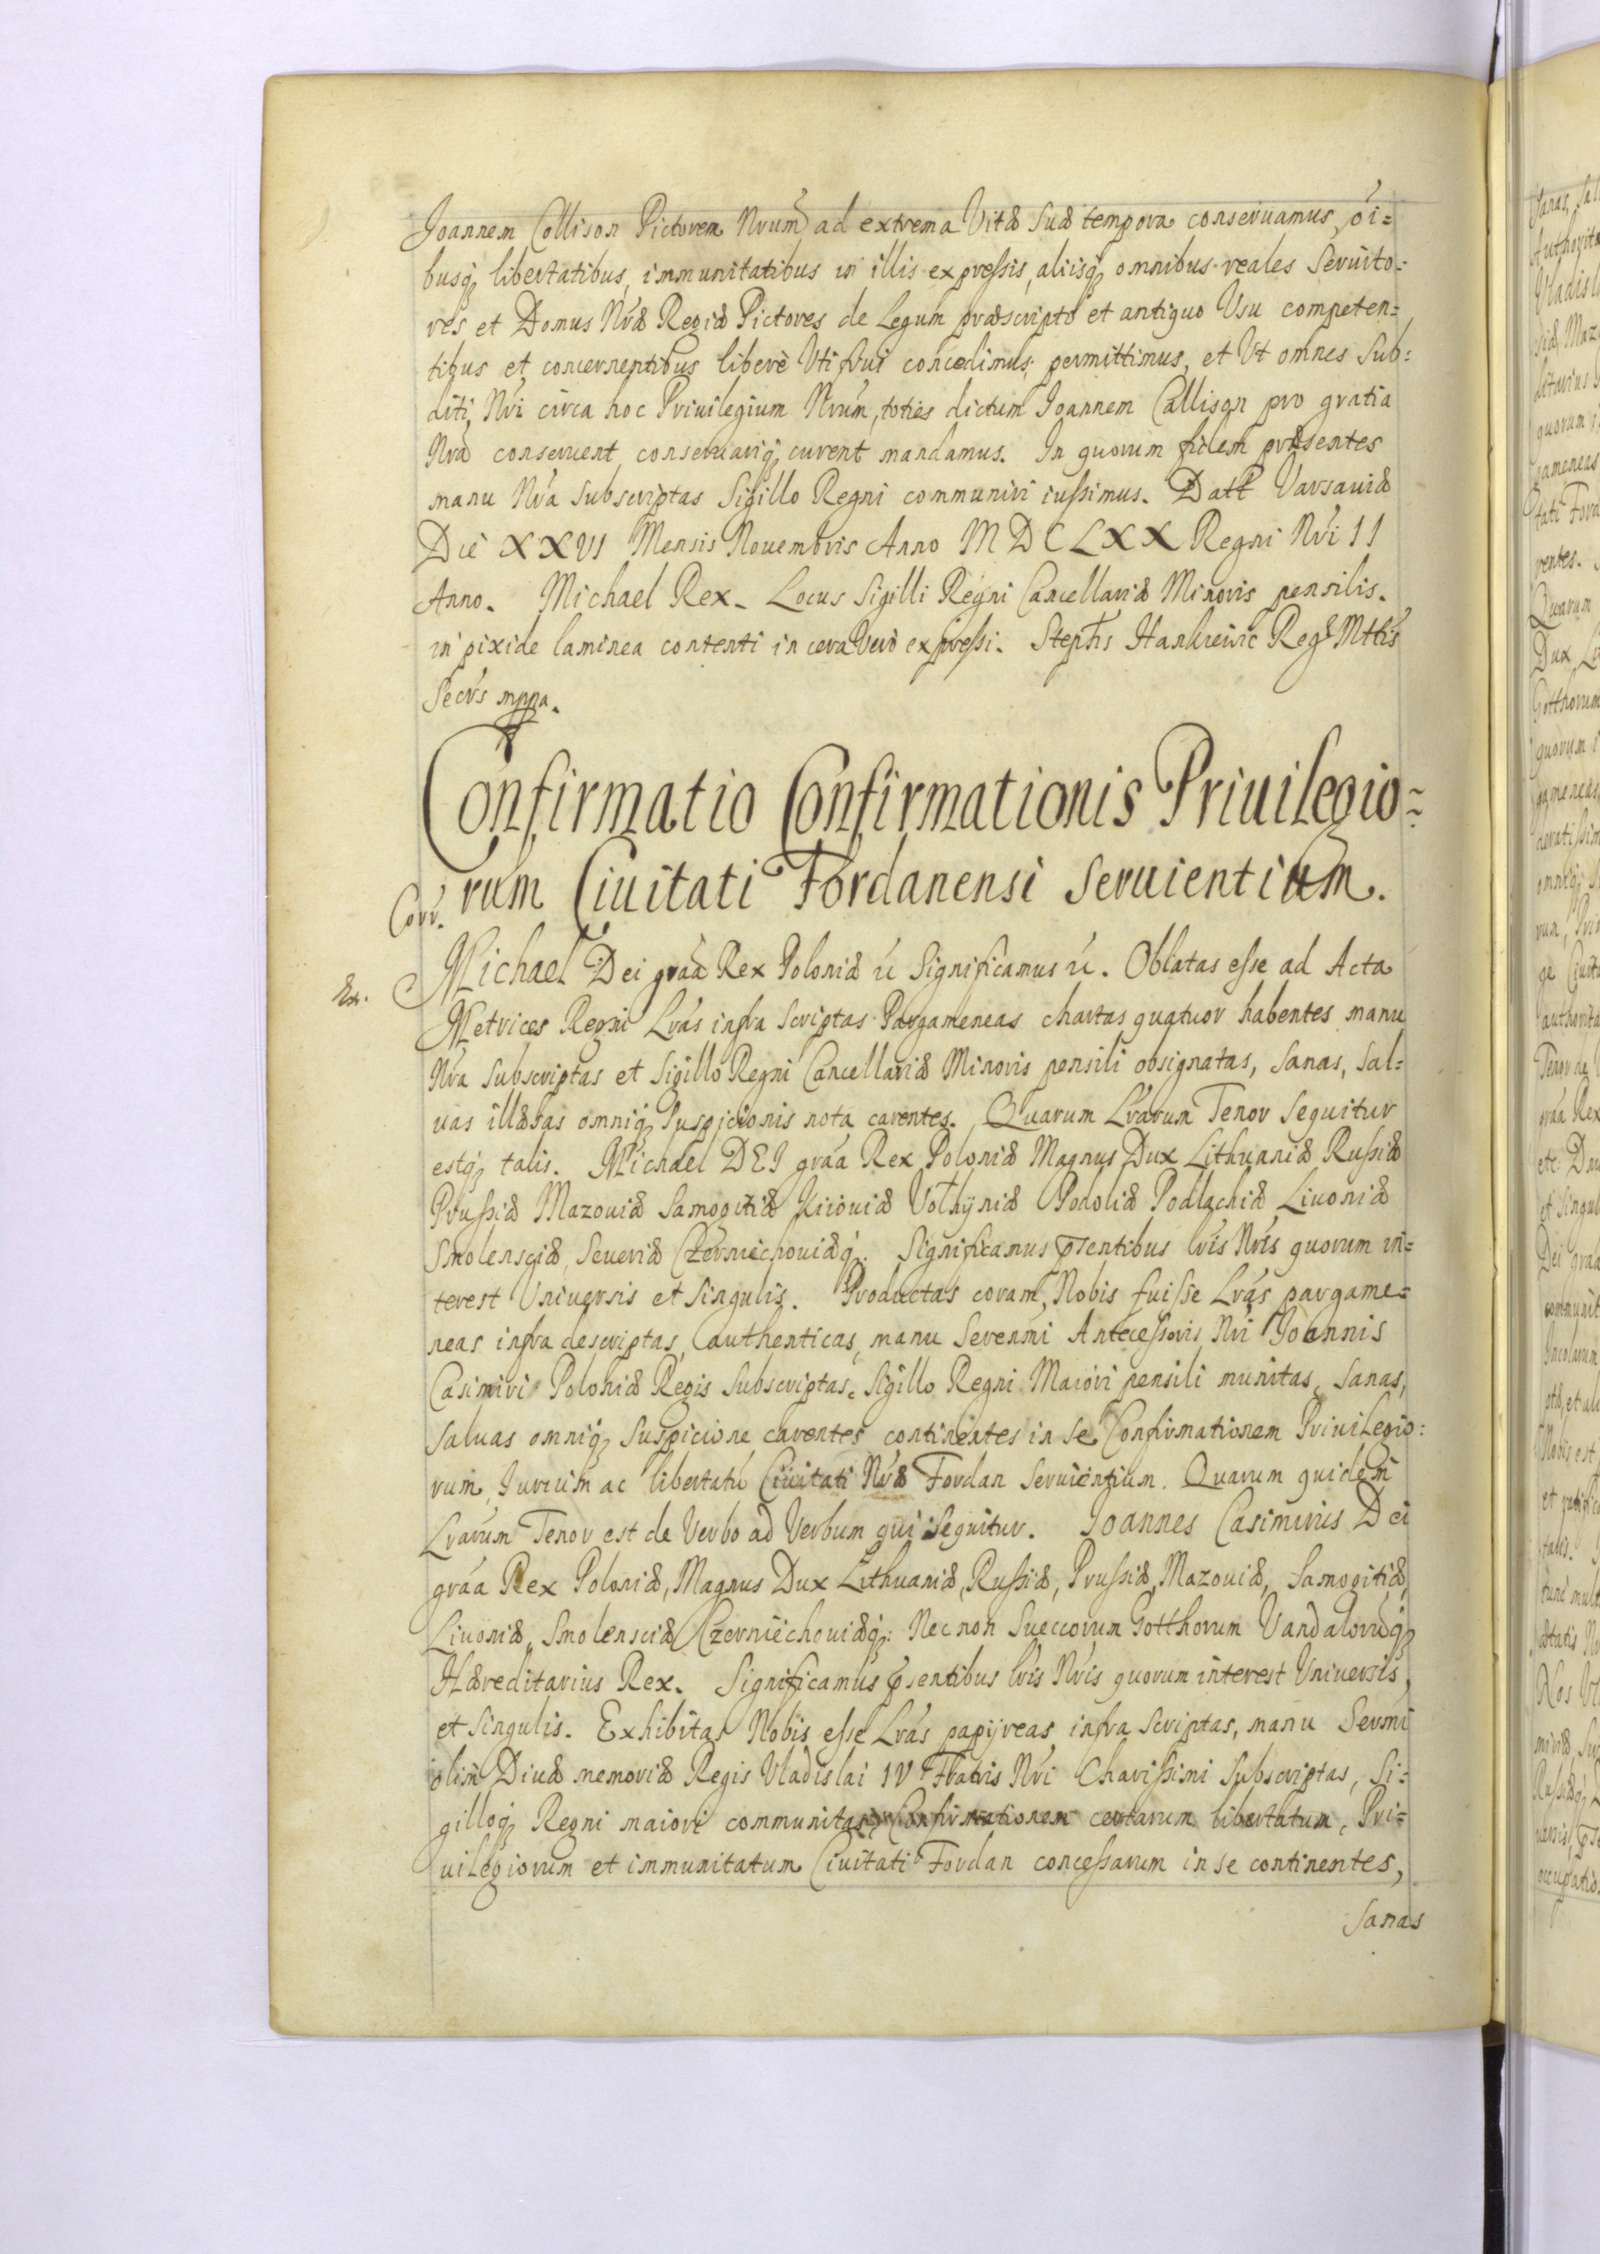 Joannem Collison Pictorem Nrum ad extrema Vitæ suæ tempora conseruamus, oi=
busq libertatibus, immunitatibus in illis expressis, aliisq omnibus reales Seruito=
res et Domus Nræ Regiæ Pictores de Legum præscripto et antiquo Usu competen=
tibus et concernentibus liberè Uti frui concedimus permittimus, et Ut omnes Sub=
diti Nri circa hoc Priuilegium Nrum, toties dictum Joannem Collison pro gratia
Nra conseruent conseruariq curent mandamus. In quorum fidem præsentes
manu Nra subscriptas Sigillo Regni communiri iussimus. Datt Varsauiæ
Die XXVI Mensis Nouembris Anno MDCLXX Regni Nri II
Anno. Michael Rex. Locus Sigilli Regni Cancellariæ Minoris pensilis.
in pixide laminea contenti in cera Verò expressi. Stephs Hankiewic Reg Mttis
Secrs mppa.
Confirmatio Confirmationis Priuilegio=
rum Ciuitati Fordanensi seruientium.
Corr.
Michael Dei gráa Rex Poloniæ ú Significamus ú. Oblatas esse ad Acta
Metrices Regni Lrás infra scriptas Pargameneas chartas quatuor habentes manu
Nra subscriptas et Sigillo Regni Cancellariæ Minoris pensili obsignatas, sanas, sal=
uas illæsas omniq Suspicionis nota carentes. Quarum Lrarum Tenor sequitur
estq talis. Michael DEI gráa Rex Poloniæ Magnus Dux Lithuaniæ Russiæ
Prussiæ Mazouiæ Samogitiæ Kiiouiæ Volhÿniæ Podoliæ Podlachiæ Liuoniæ
Smolensciæ Seueriæ Czerniechouiæq. Significamus pñtentibus lris Nris quorum in=
terest Uniuersis et Singulis. Productas coram Nobis fuisse Lrás pargame=
neas infra descriptas, authenticas, manu Serenmi Antecessoris Nri Joannis
Casimiri Poloniæ Regis Subscriptas, Sigillo Regni Maiori pensili munitas, sanas,
saluas omniq Suspicione carentes continentes in se Confirmationem Priuilegio=
rum, Jurium ac libertatũ Ciuitati Nræ Fordan Seruientium. Quarum quidem
Lrarum Tenor est de Verbo ad Verbum qui sequitur. Joannes Casimirus Dei
gráa Rex Poloniæ, Magnus Dux Lithuaniæ, Russiæ, Prussiæ, Mazouiæ, Samogitiæ
Liuoniæ, Smolensciæ Czerniechouiæq. Necnon Sueccorum Gotthorum Vandalorũq
Hæreditarius Rex. Significamus psentibus lris Nris quorum interest Uniuersis,
et Singulis. Exhibitas Nobis esse Lrás papÿreas infra scriptas, manu Sermi
olim Diuæ memoriæ Regis Vladislai IV Fratris Nri Charissimi Subscriptas, Si=
gilloq Regni maiori communitas, Confirmationem certarum libertatum, Pri=
uilegiorum et immunitatum Ciuitati Fordan concessarum in se continentes,
sanas